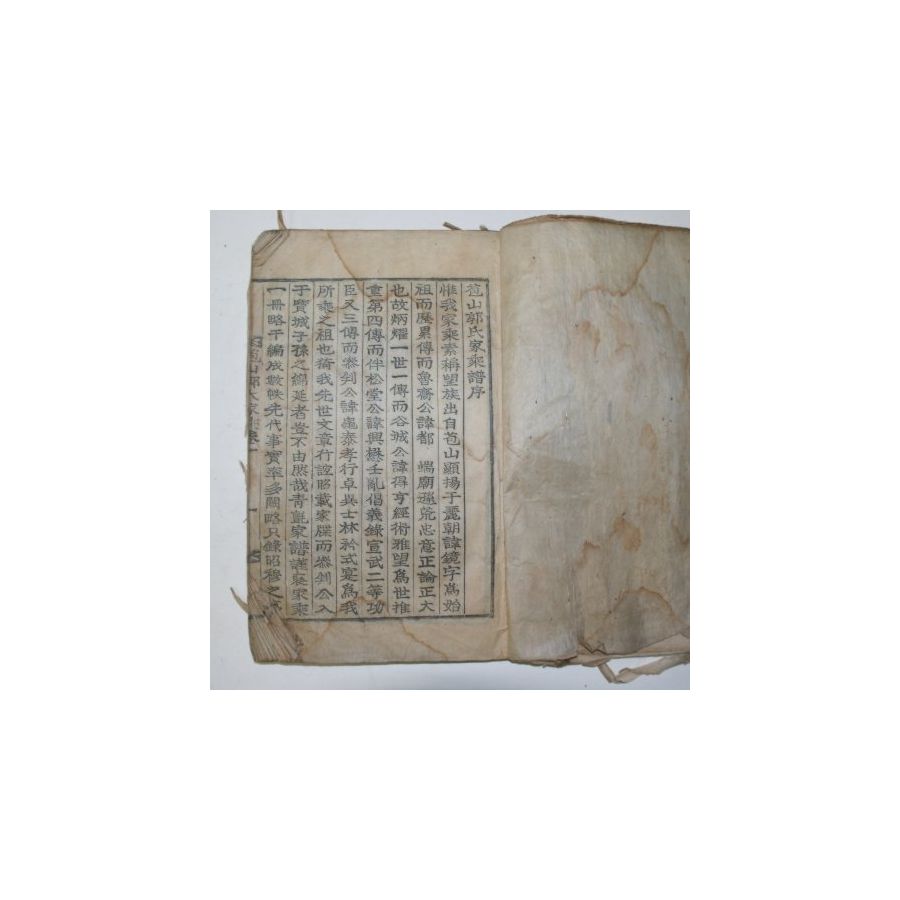 苞山郭氏家乘譜序
惟我家乘素稱望族出自苞山顯揚于麗朝諱鏡字爲始
祖而歷累傳而魯齋公諱都 端廟遜荒忠意正論正大
也故炳耀一世一傳而谷城公諱得亨經術雅望爲世推
重第四傳而伴松堂公諱興懋壬亂倡義錄宣武二等功
臣又三傳而參判公諱龜泰孝行卓異士林矜式寔爲我
所乘之祖也猗我先世文章行誼昭載家牒而參判公入
于寶城子孫之綿延者豈不由熙哉靑氈家譜謹裒家乘
一冊略干編成數帙先代事實率多闕略只錄昭穆之